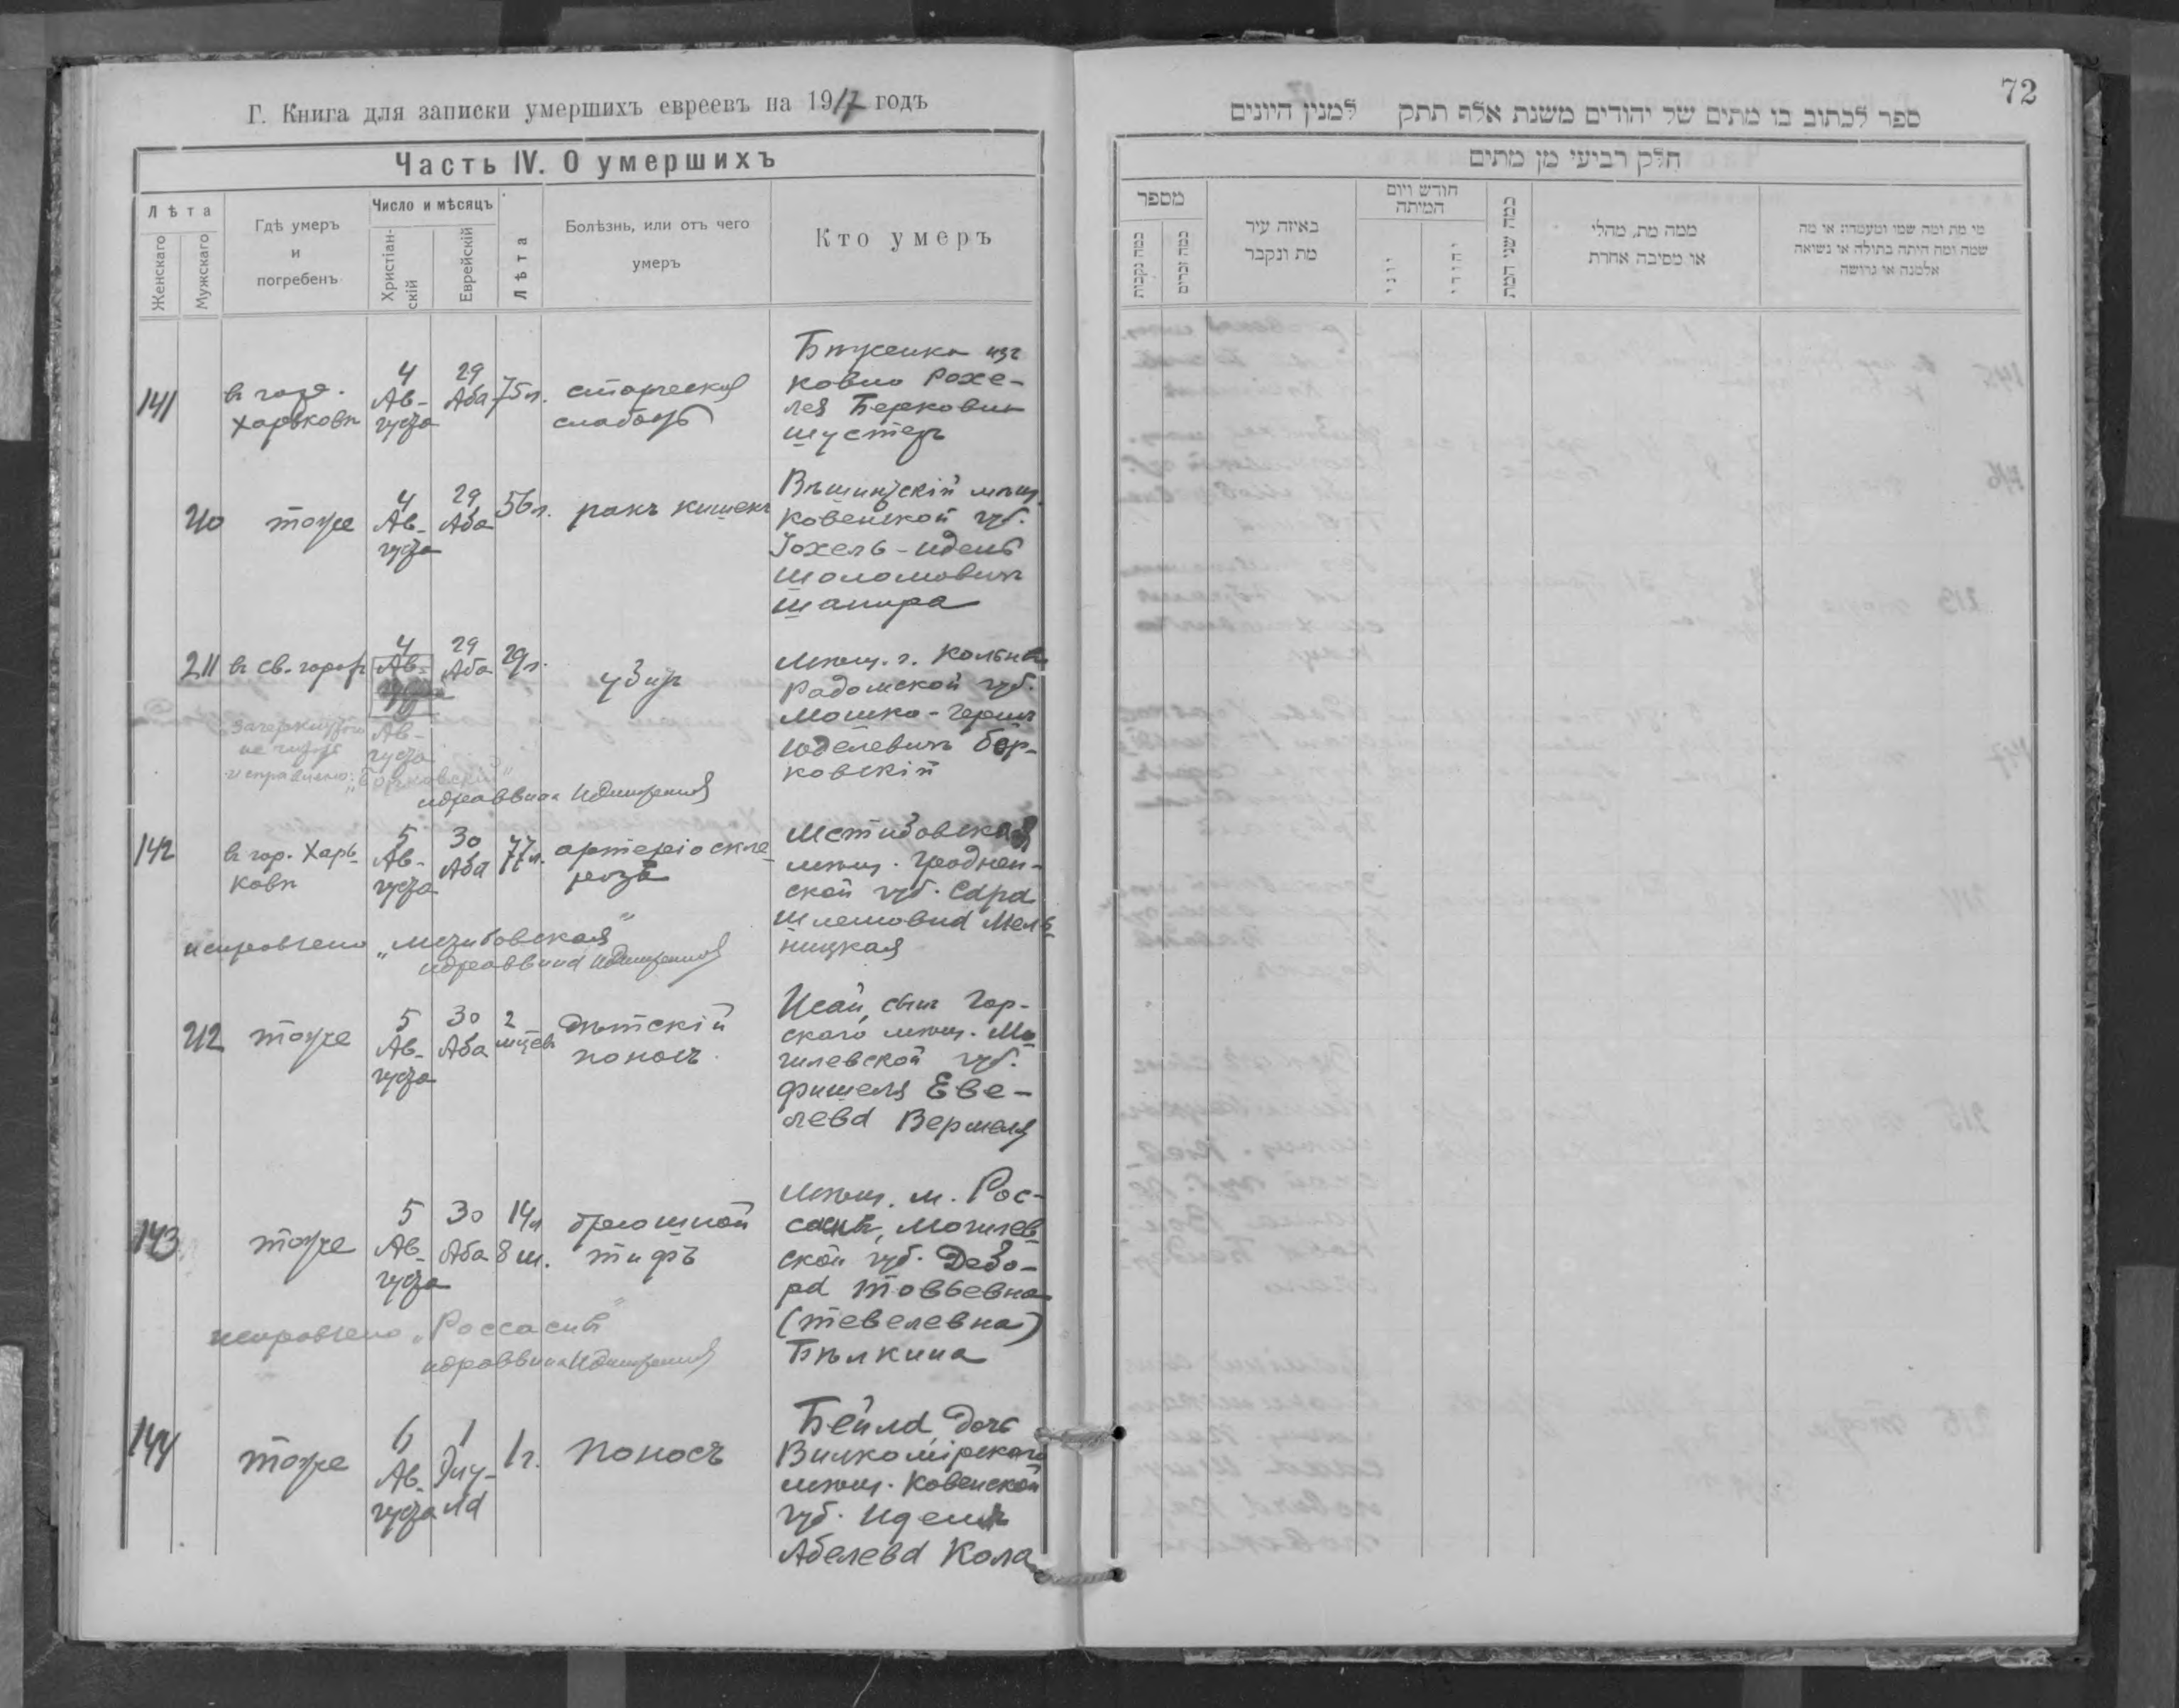 Г. Книга для записки умершихъ евреевъ на 1917 годъ
Часть IV. О умершихъ
Лѣта
Женскаго
Мужскаго
Гдѣ умеръ
и
погребенъ
Число и мѣсяцъ
Христіан-
скій
Еврейскій
Лѣта
Болѣзнь, или отъ чего
умеръ
Кто умеръ
141
въ гор.
Харьковѣ
4
Ав-
густа
29
Аба
75 л.
старческая
слабость
Бѣженка изъ
Ковно Рохе-
лея Беркович
Шустеръ
210
тоже
4
Ав-
густа
29
Аба
56 л.
ракъ кишекъ
мѣщ.
Ковенской губ.
Іохель-Идель
Шоломовичъ
Шапира
211
въ св. горахъ
4
Ав-
29
Аба
29 л.
Ав-
густа
зачеркнутое
не читать
исправлено: „Борковскій“
мѣщ. г.
Радомской губ.
Мошко-Гершъ
Юделевичъ Бор-
ковскій
142
въ гор. Харь-
ковѣ
5
Ав-
густа
30
Аба
77 л.
артеріоскле-
розъ
мѣщ. Гроднен-
ской губ. Сара
Шлемовна Мель-
ницкая
исправлено „Мстибовская“
212
тоже
5
Ав-
густа
30
Аба
2
мѣсц.
Дѣтскій
поносъ
Исай, сынъ Гор-
скаго мѣщ. Мо-
гилевской губ.
Фишеля Еве-
лева Вермеля
143
тоже
5
Ав-
густа
30
Аба
14 л
8 м.
брюшной
тифъ
мѣщ. м. Рос-
Могилев-
ской губ. Дебо-
ра Товьевна
(Тевелевна)
Бѣлкина
исправлено „Россасны“
144
тоже
6
Ав-
густа
1
Элу-
ла
1 г.
поносъ
Бейла, дочь
Вилкомірскаго
мѣщ. Ковенской
губ.
Абелева Кола
72
ספר לכתוב בו מתים של יהודים משנת אלף תתק למנין היונים
חלק רביעי מן מתים
מספר
כמה נקבות
כמה זכרים
באיזה עיר
מת ונקבר
חודש ויום
המיתה
יוני
יהודי
כמה שני המת
ממה מת, מחלי
או מסיבה אחרת
מי מת ומה שמו ומעמדו או מה
שמה ומה היתה בתולה או נשואה
אלמנה או גרושה